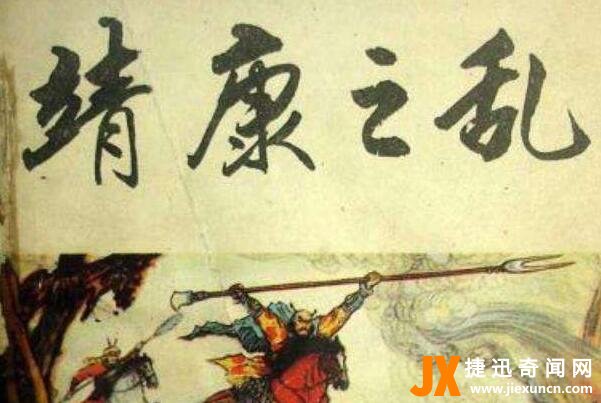 靖康之乱
JX 捷迅奇闻网
www.jiexuncn.com